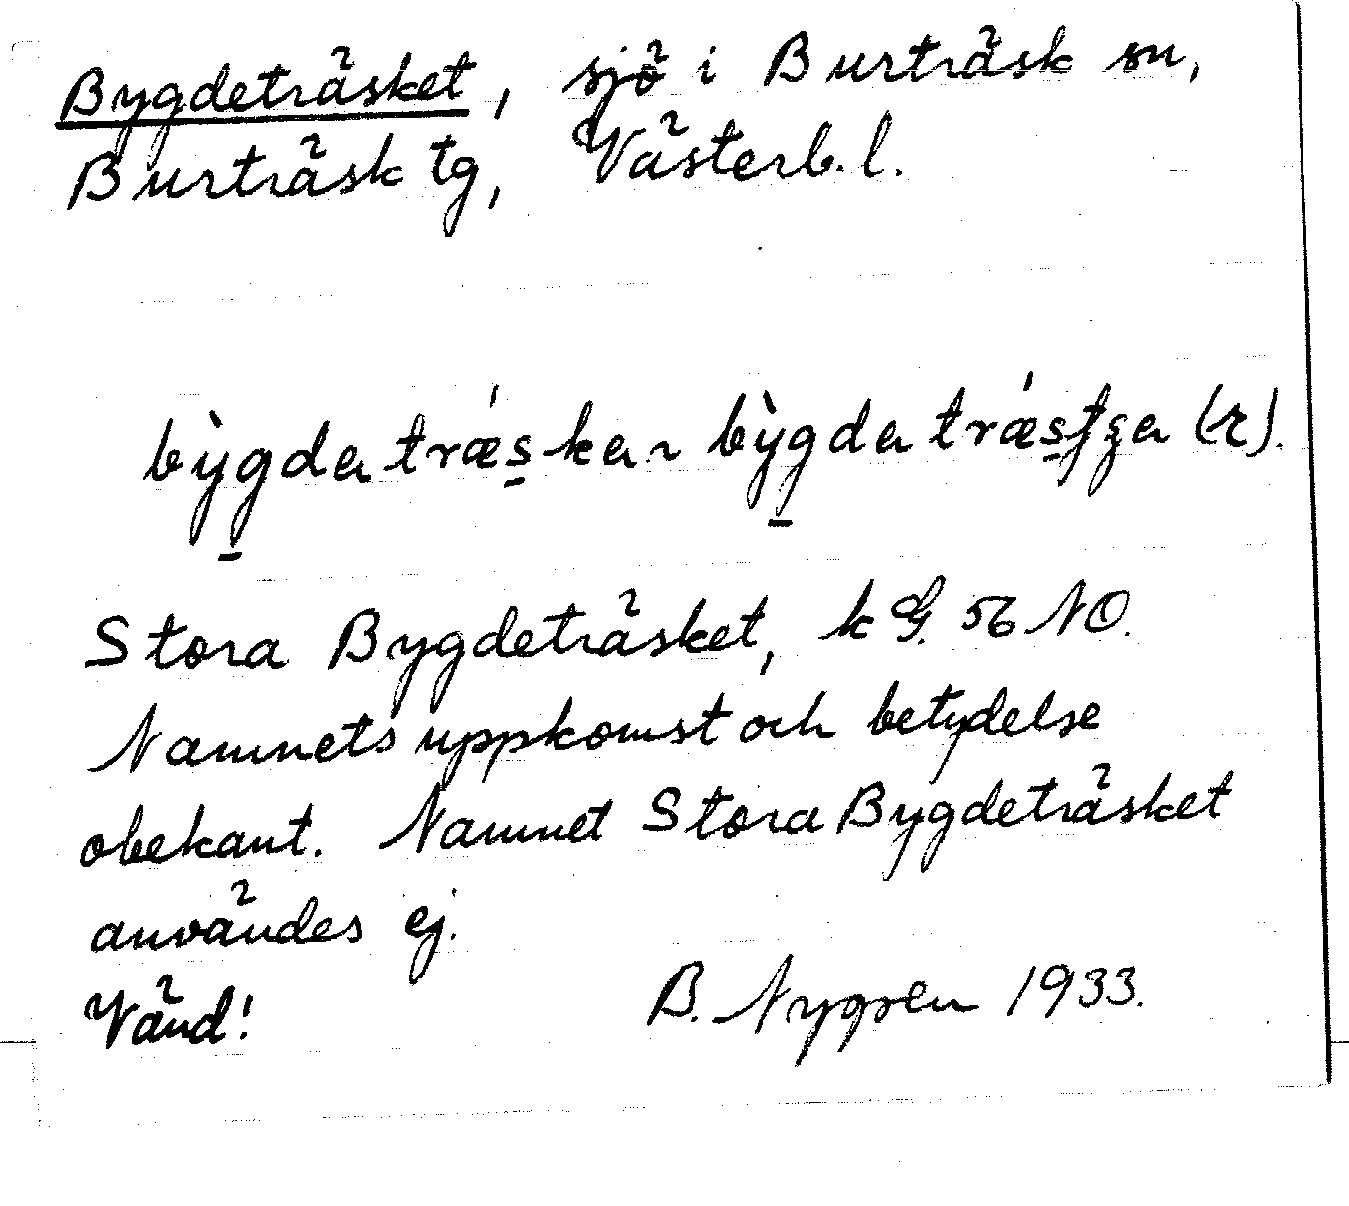 Bygdeträsket, sjö i Burträsk sn,
Burträsk tg, Västerb. l.
bỳgda trǽska ~ bỳgda
Stora Bygdeträsket, k G. 56 NO.
Namnets uppkomst och betydelse
obekant. Namnet Stora Bygdeträsket
användes ej.
Vänd! B. Nygren 1933.